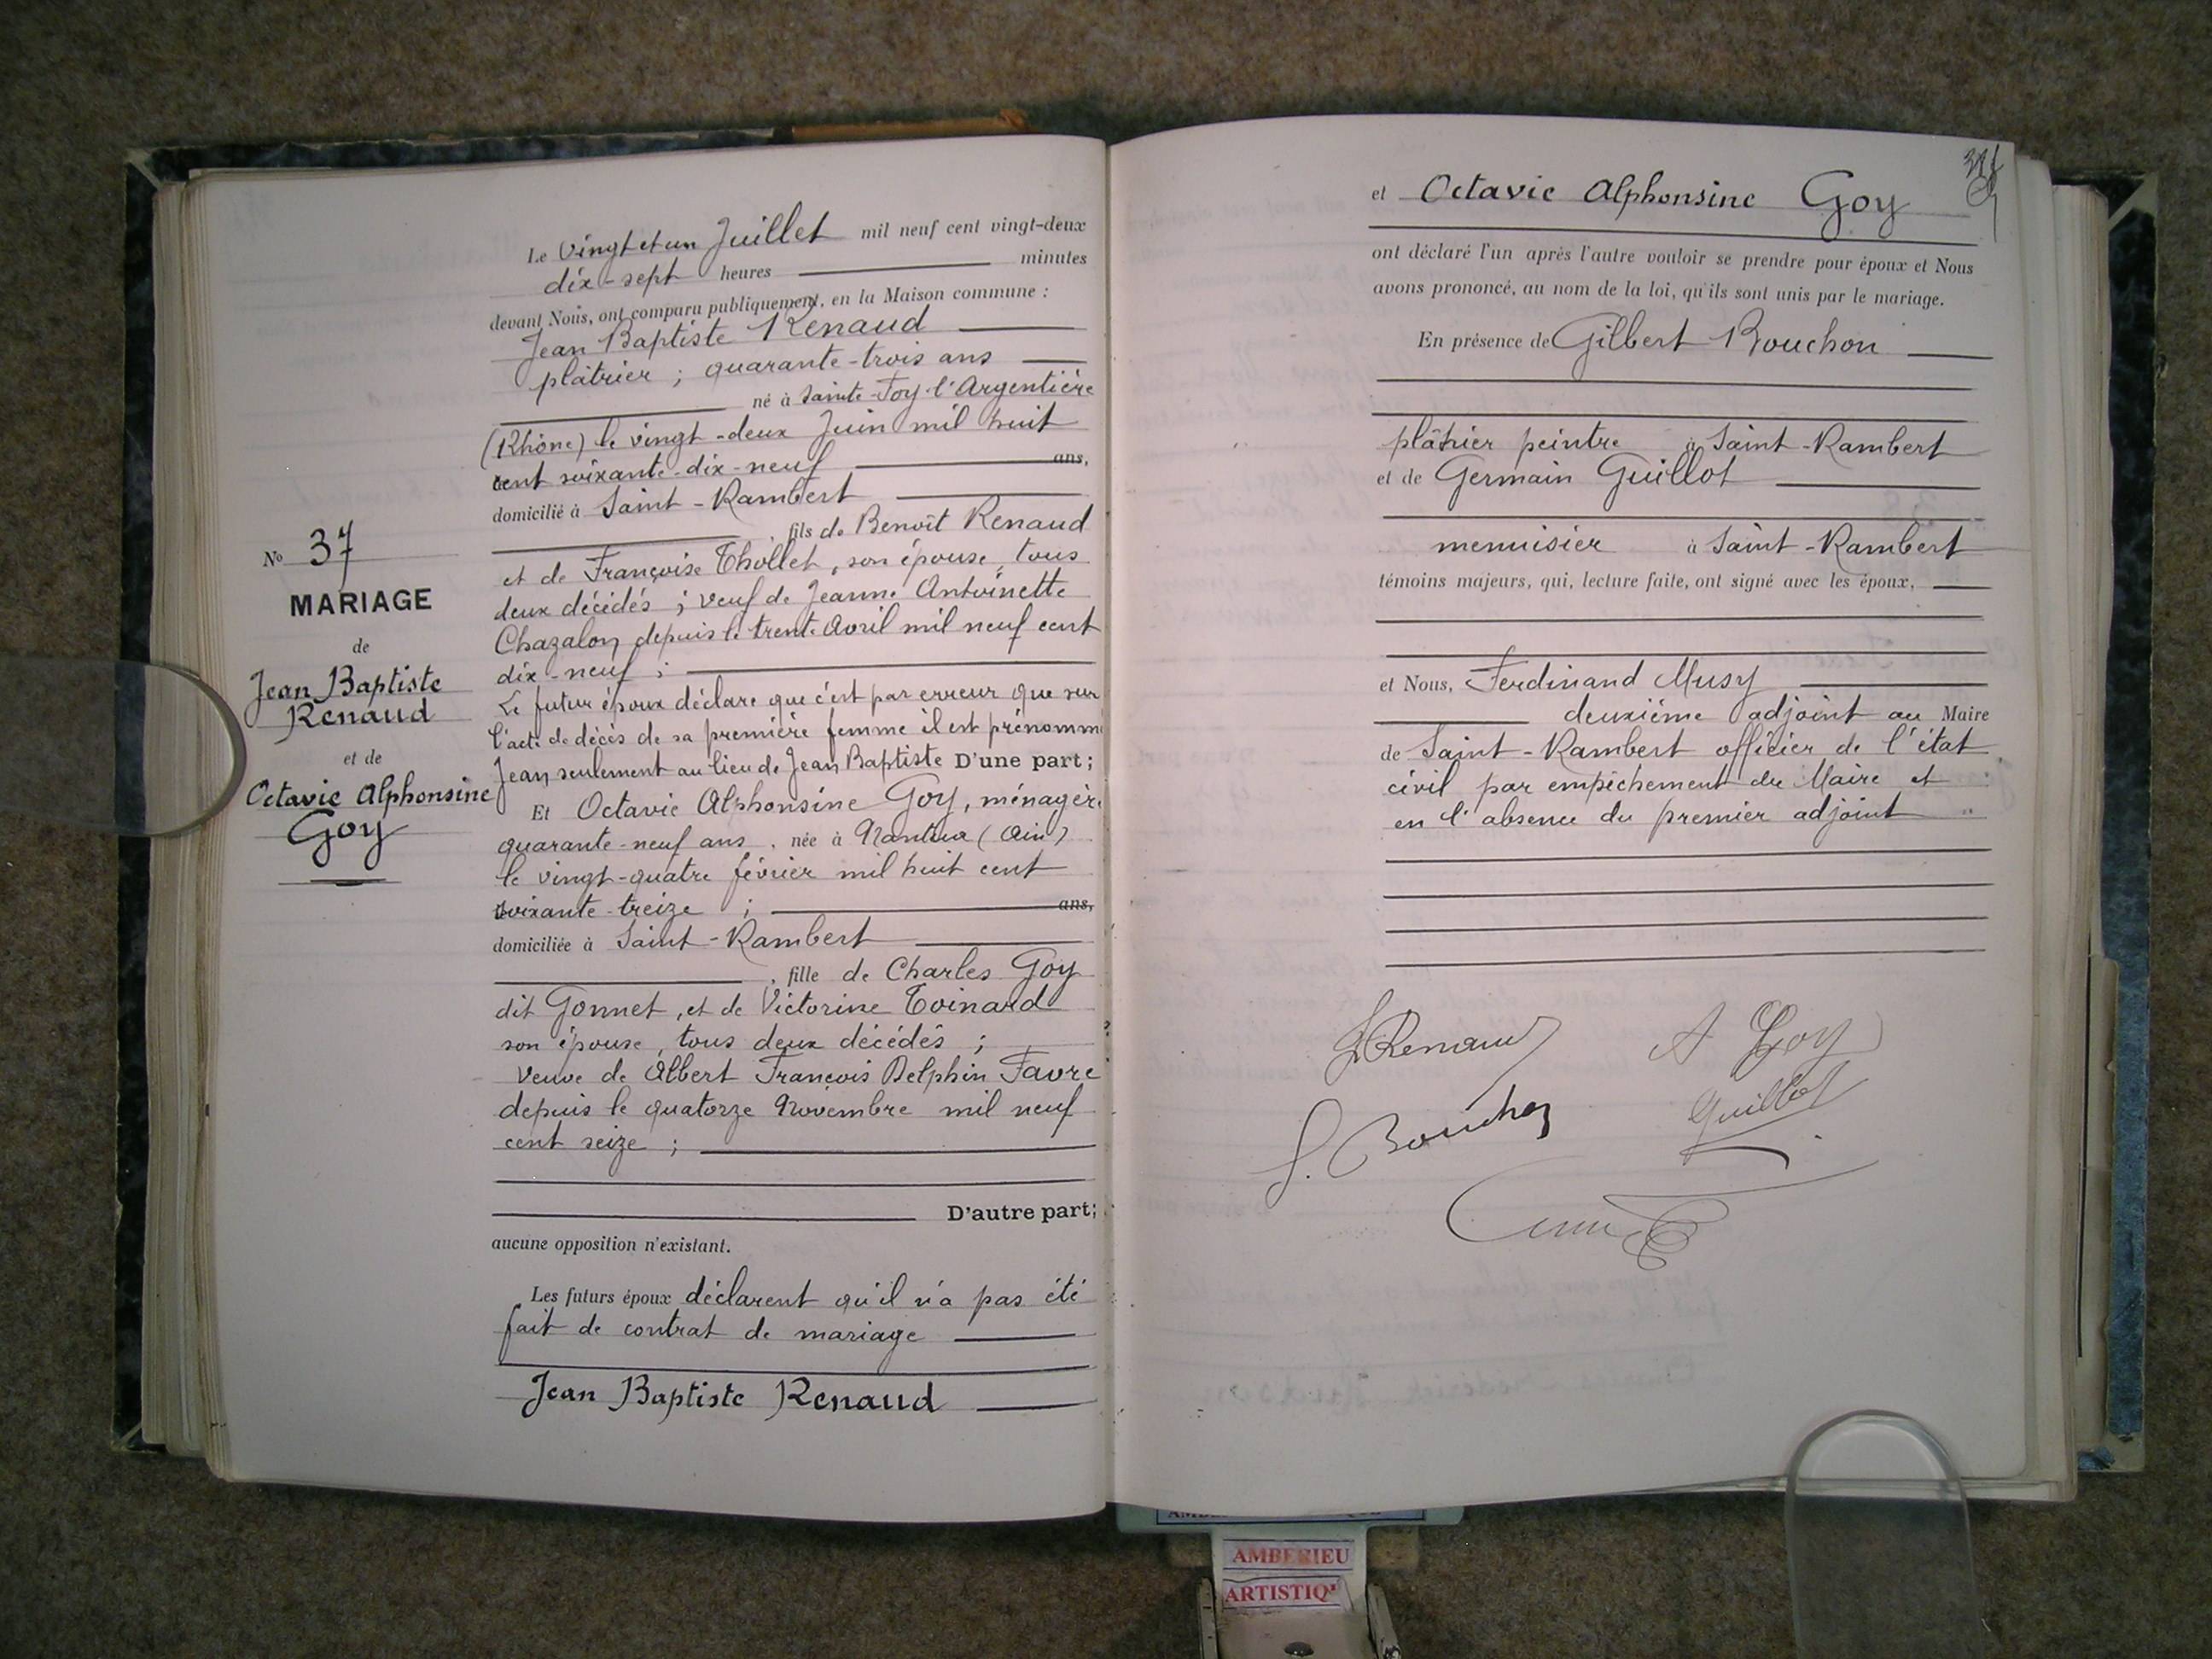 Le vingt et un Juillet mil neuf cent vingt-deux
dix-sept heures minutes
devant Nous, ont comparu publiquement, en la Maison commune :
Jean Baptiste Renaud
plâtrier ; quarante-trois ans
né à Sainte-Foy-l'Argentière
(Rhône) le vingt-deux Juin mil huit
cent soixante-dix-neuf ans,
domicilié à Saint-Rambert
, fils de Benoît Renaud
et de Françoise Thollet, son épouse, tous
deux décédés ; veuf de Jeanne Antoinette
Chazalon depuis le trente Avril mil neuf cent
dix-neuf ;
Le futur époux déclare que c'est par erreur que sur
l'acte de décès de sa première femme il est prénommé
Jean seulement au lieu de Jean Baptiste D'une part;
Et Octavie Alphonsine Goy, ménagère
quarante-neuf ans, née à Nantua (Ain)
le vingt-quatre février mil huit cent
soixante-treize ; ans,
domiciliée à Saint-Rambert
, fille de Charles Goy
dit Gonnet, et de Victorine Toinard
son épouse, tous deux décédés ;
Veuve de Albert François Delphin Favre
depuis le quatorze Novembre mil neuf
cent seize ;
D'autre part;
aucune opposition n'existant.
Les futurs époux déclarent qu'il n'a pas été
fait de contrat de mariage
Jean Baptiste Renaud
No 37
MARIAGE
de
Jean Baptiste
Renaud
et de
Octavie Alphonsine
Goy
et Octavie Alphonsine Goy
ont déclaré l'un après l'autre vouloir se prendre pour époux et Nous
avons prononcé, au nom de la loi, qu'ils sont unis par le mariage.
En présence de Gilbert Bouchon
plâtrier peintre à Saint-Rambert
et de Germain Guillot
menuisier à Saint-Rambert
témoins majeurs, qui, lecture faite, ont signé avec les époux,
et Nous, Ferdinand Musy
deuxième adjoint au Maire
de Saint-Rambert officier de l'état
civil par empêchement du Maire et
en l'absence du premier adjoint
Renaud A Goy
G. Bouchon Guillot
AMBERIEU
ARTISTIQ